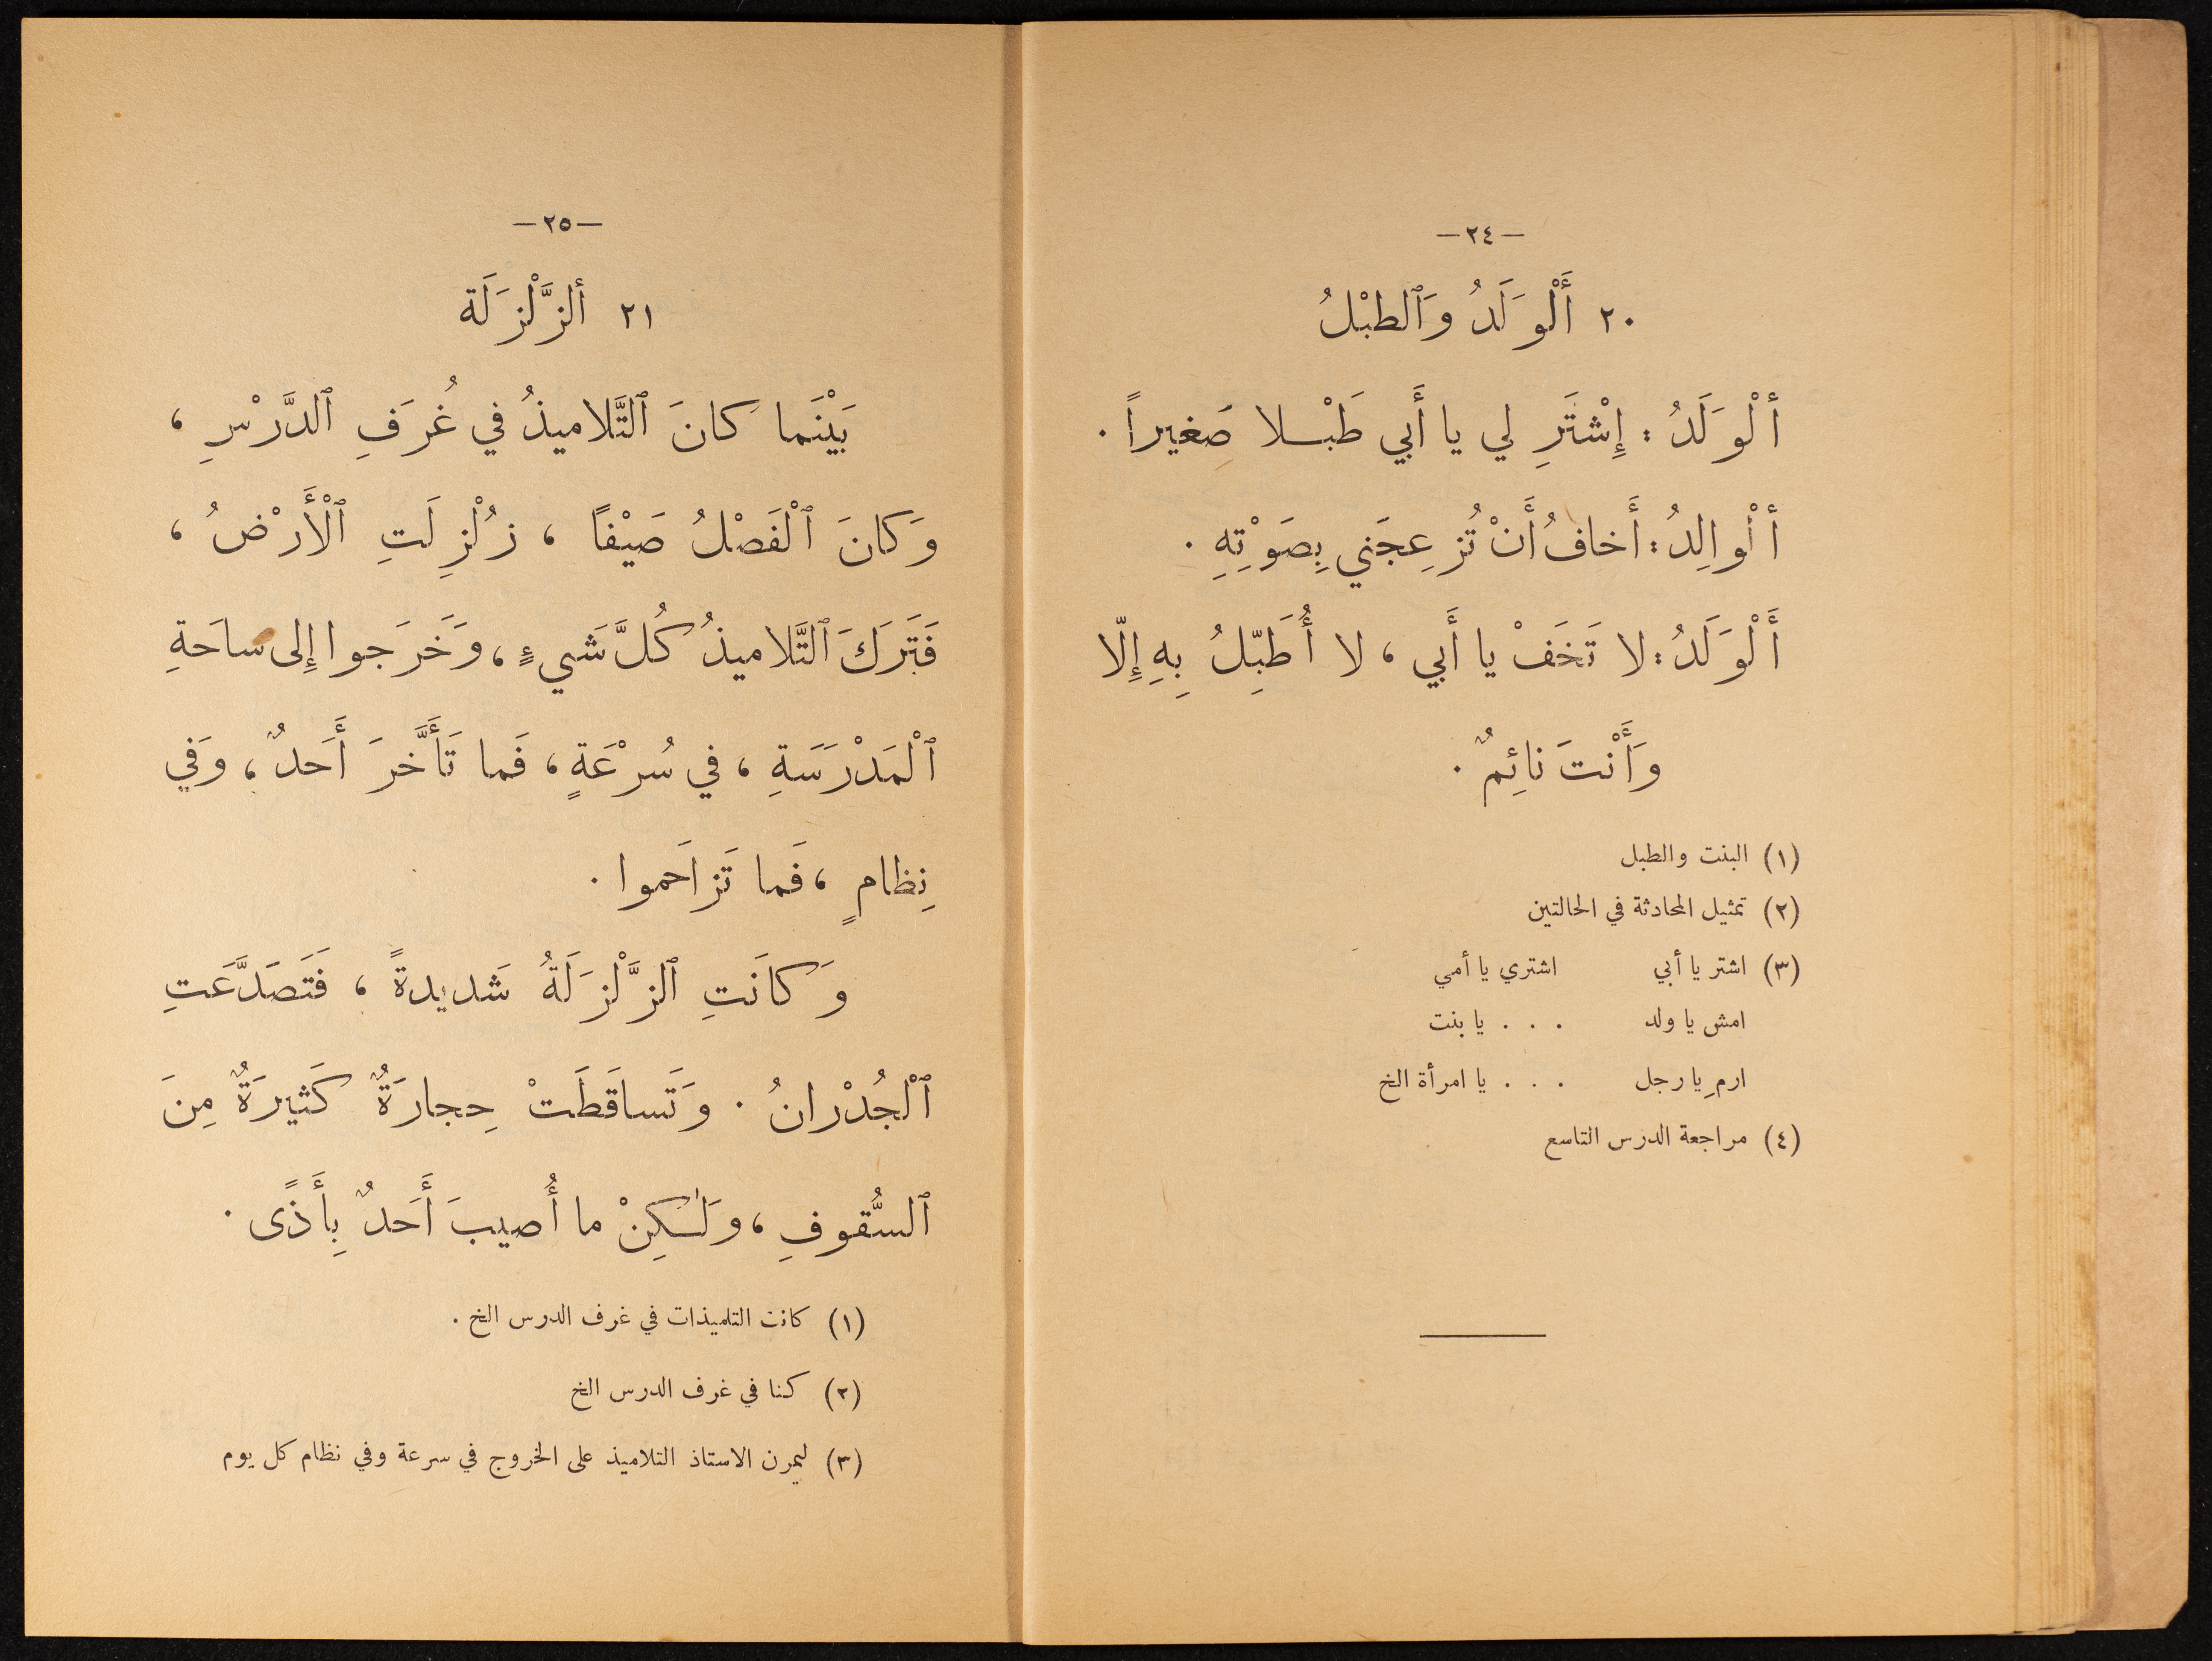 —٢٤—
٢٠ أَلْوَلَدُ وَٱلطبْلُ
ألْوَلَدُ : إِشْتَرِ لي يا أَبي طَبْـلا صَغيراً .
ألْوالِدُ : أَخافُ أَنْ تُزعِجَني بِصَوْتِهِ .
أَلْوَلَدُ : لا تَخَفْ يا أَبي ، لا أُطَبِّلُ بِهِ إِلّا
وَأَنْتَ نائِمٌ .
(١) البنت والطبل
(٢) تمثيل المحادثة في الحالتين
(٣) اشتر يا أبي اشتري يا أمي
امش يا ولد . . . يا بنت
ارمِ يا رجل . . . يا امرأة الخ
(٤) مراجعة الدرس التاسع
—٢٥—
٢١ ألزَّلْزَلَة
بَيْنَما كانَ ٱلتَّلاميذُ في غُرَفِ ٱلدَّرْسِ ،
وَكانَ ٱلْفَصْلُ صَيْفًا ، زُلْزِلَتِ ٱلْأَرْضُ ،
فَتَرَكَ ٱلتَّلاميذُ كُلَّ شَيءٍ ، وَخَرَجوا إِلى ساحَةِ
ٱلْمَدْرَسَةِ ، في سُرْعَةٍ ، فَما تَأَخَّرَ أَحَدٌ ، وَفي
نِظامٍ ، فَما تَزاحَموا .
وَكانَتِ ٱلزَّلْزَلَةُ شَديدةً ، فَتَصَدَّعَتِ
ٱلْجُدْرانُ . وَتَساقَطَتْ حِجارَةٌ كَثيرَةٌ مِنَ
ٱلسُّقوفِ ، وَلٰكِنْ ما أُصيبَ أَحَدٌ بِأَذًى .
(١) كانت التلميذات في غرف الدرس الخ .
(٢) كنا في غرف الدرس الخ
(٣) ليمرن الاستاذ التلاميذ على الخروج في سرعة وفي نظام كل يوم